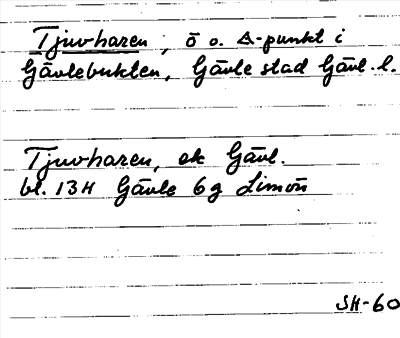 Tjuvharen, ö o. Δ-punkt i
Gävlebukten, Gävle stad Gävl. l.
Tjuvharen, ek Gävl.
bl. 13H Gävle 6g Limön
SH-60